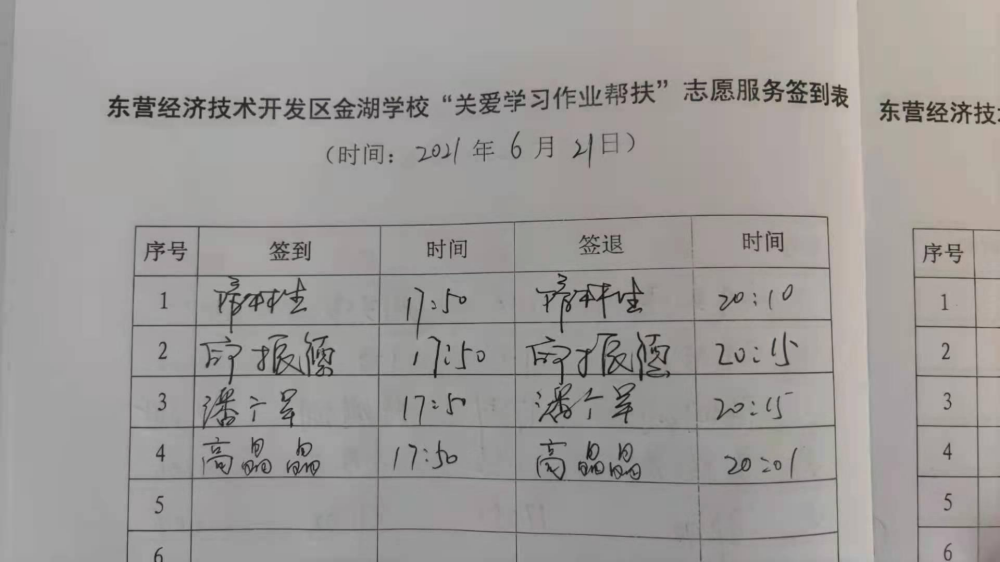 东营经济技术开发区金湖学校“关爱学习作业帮扶”志愿服务签到表
(时间: 2021 年 6 月 21日)
序号 签到 时间 签退 时间
1 17:50 20:10
2 17:50 20:15
3 17:50 20:15
4 高晶晶 17:50 高晶晶 20:01
5
6
东营经济技
序号
1
2
3
4
5
6